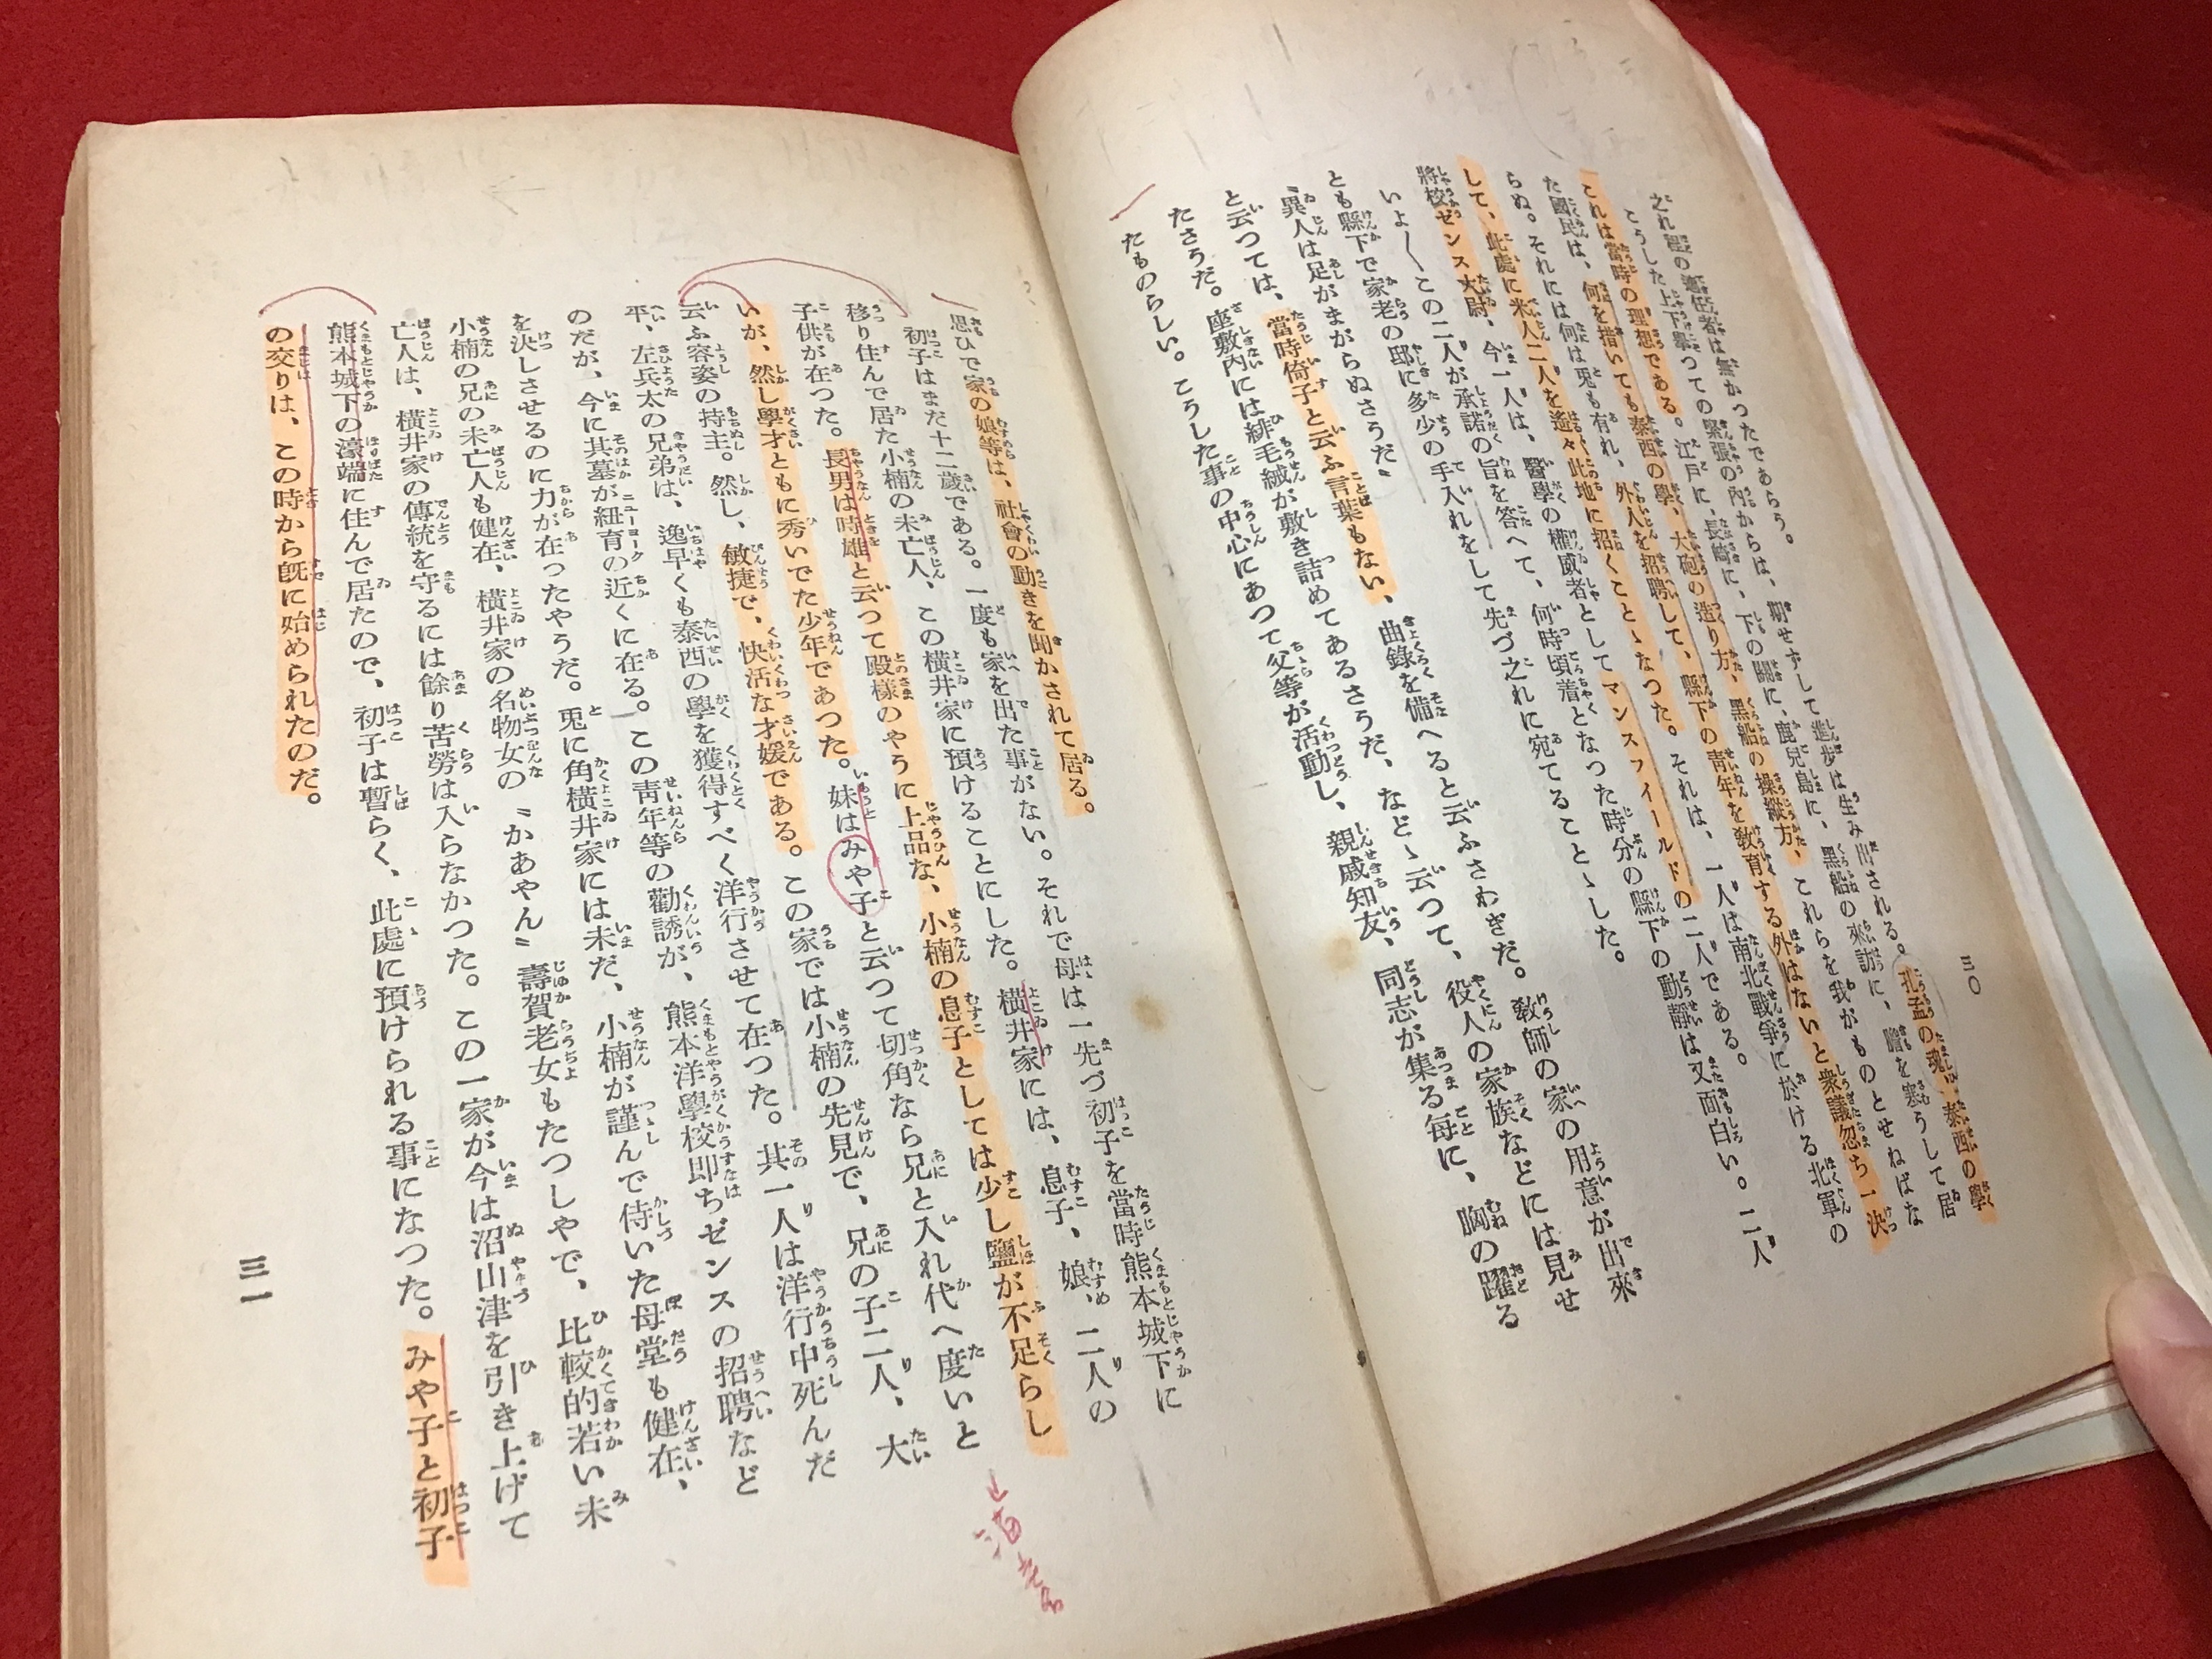 之れ程の適任者は無かつたであらう。期せずして進歩は生み出される。孔孟の魂、泰西の學
こうした上下擧つての緊張の内からは、
これは當時の理想である。江戸に、長崎に、下の關に、鹿兒島に、黑船の來訪に、膽を寒うして居
た國民は、何を措いても泰西の學、大砲の造り方、黑船の操縱方、これらを我がものとせねばな
らぬ。それには何は兎も有れ、外人を招聘して、縣下の靑年を敎育する外はないと衆議忽ち一決
して、此處に米人二人を遙々此地に招くことゝなつた。それは、一人は南北戰爭に於ける北軍の
將校ゼンス大尉、今一人は、醫學の權威者としてマンスフィールドの二人である。二人
いよ〳〵この二人が承諾の旨を答へて、何時頃着となつた時分の縣下の動靜は又面白い。
とも縣下で家老の邸に多少の手入れをして先づ之れに宛てることゝした。
〝異人は足がまがらぬさうだ〟
と云つては、當時倚子と云ふ言葉もない、曲錄を備へると云ふさわぎだ。敎師の家の用意が出來
たさうだ。座敷内には緋毛絨が敷き詰めてあるさうだ、などゝ云つて、役人の家族などには見せ
たものらしい。こうした事の中心にあつて父等が活動し、親戚知友、同志が集る每に、胸の躍る
三〇
思ひで家の娘等は、社會の動きを聞かされて居る。
初子はまだ十二歲である。一度も家を出た事がない。それで母は一先づ初子を當時熊本城下に
移り住んで居た小楠の未亡人、この橫井家に預けることにした。橫井家には、息子、娘、二人の
子供が在つた。長男は時雄と云つて殿樣のやうに上品な、小楠の息子としては少し鹽が不足らし
いが、然し學才ともに秀いでた少年であつた。妹はみや子と云つて切角なら兄と入れ代へ度いと
云ふ容姿の持主。然し、敏捷で、快活な才媛である。この家では小楠の先見で、兄の子二人、大
平、左兵太の兄弟は、逸早くも泰西の學を獲得すべく洋行させて在つた。共一人は洋行中死んだ
のだが、今に共墓が紐育の近くに在る。この靑年等の勸誘が、熊本洋學校卽ちゼンスの招聘など
を決しさせるのに力が在つたやうだ。兎に角橫井家には未だ、小楠が謹んで侍いた母堂も健在、
小楠の兄の未亡人も健在、橫井家の名物女の〝かあやん〟壽賀老女もたつしやで、比較的若い未
亡人は、橫井家の傳統を守るには餘り苦勞は入らなかつた。この一家が今は沼山津を引き上げて
熊本城下の濠端に住んで居たので、初子は暫らく、此處に預けられる事になつた。みや子と初子
の交りは、この時から旣に始められたのだ。
三一